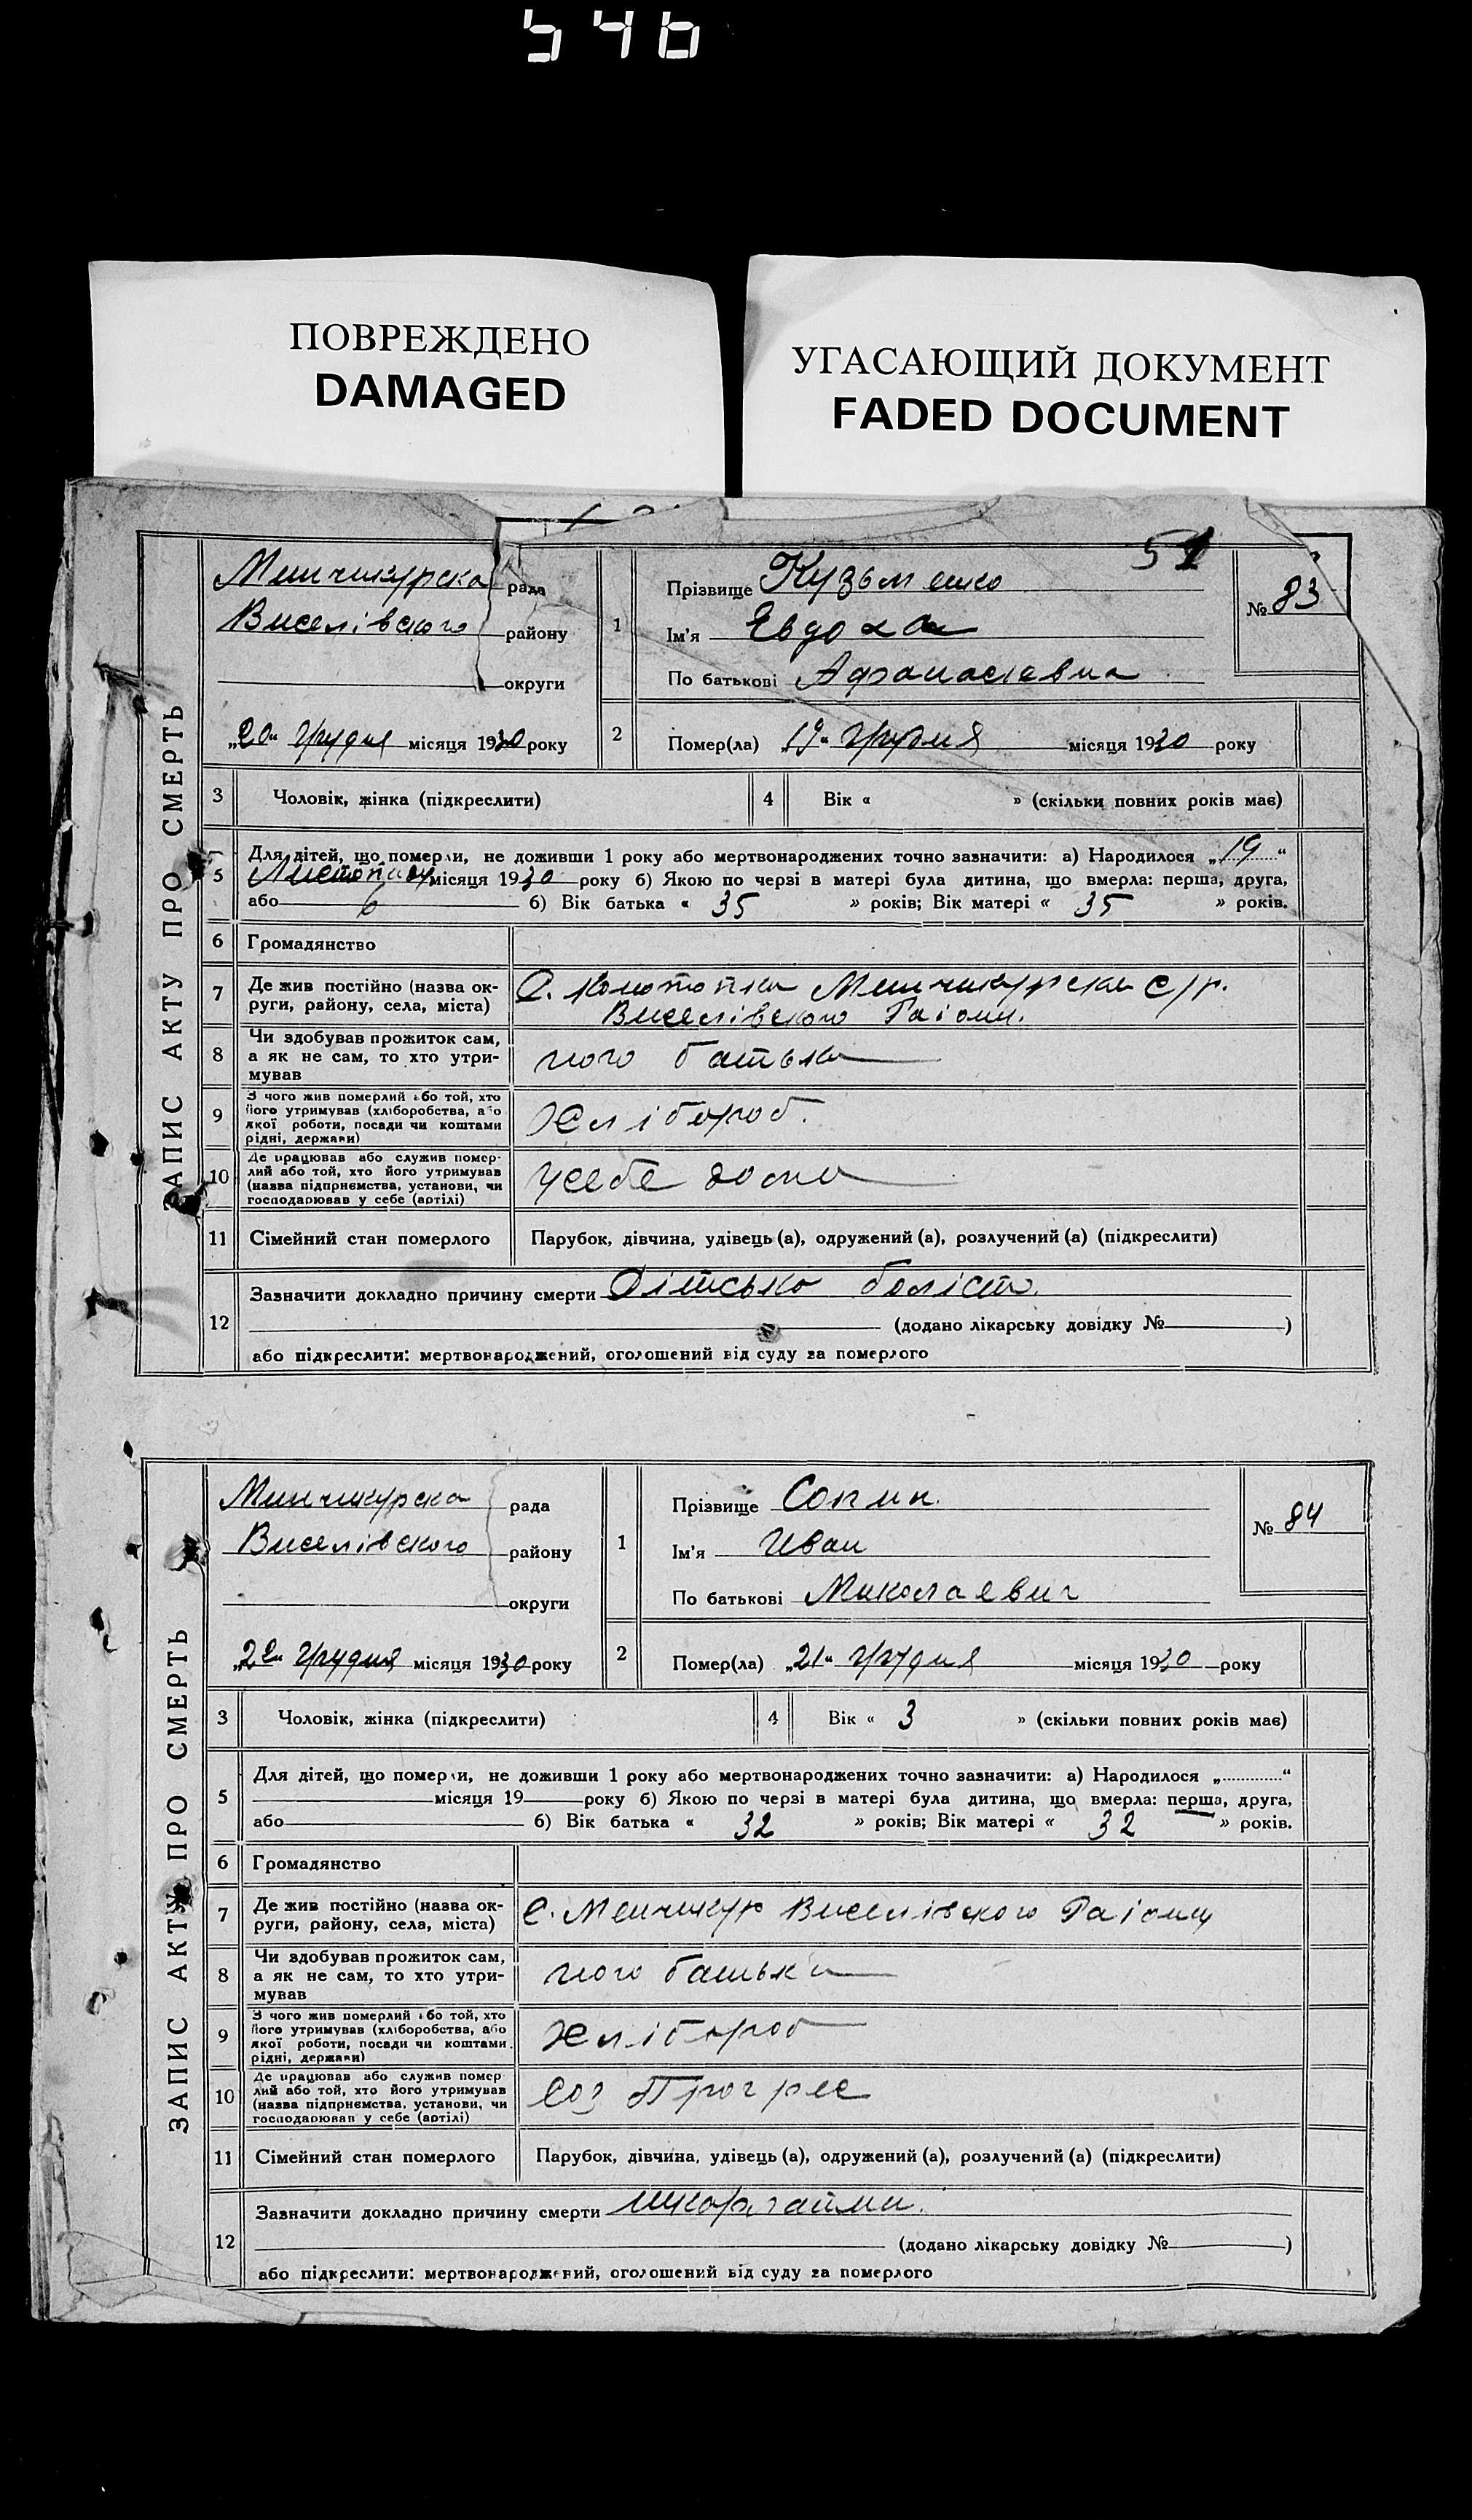 546
ПОВРЕЖДЕНО
DAMAGED
УГАСАЮЩИЙ ДОКУМЕНТ
FADED DOCUMENT
51
ЗАПИС АКТУ ПРО СМЕРТЬ
Менчикурска рада
Виселівского району
округи
„20“ Грудня місяця 1930 року
1
Прізвище Кузьменко
Ім'я Евдоха
По батькові Афанасиевна
№ 83
2
Помер(ла) „19“ Грудня місяця 1930 року
3
Чоловік, жінка (підкреслити)
4
Вік « » (скільки повних років має)
5
Для дітей, що померли, не доживши 1 року або мертвонароджених точно зазначити: а) Народилося „19“
Листопаду місяця 1930 року б) Якою по черзі в матері була дитина, що вмерла: перша, друга,
або 6 б) Вік батька « 35 » років; Вік матері « 35 » років.
6
Громадянство
7
Де жив постійно (назва ок-
руги, району, села, міста)
С. Конотопка Менчикурска С/р.
Виселівского Раіону.
8
Чи здобував прожиток сам,
а як не сам, то хто утри-
мував
його батько
9
З чого жив померлий або той, хто
його утримував (хліборобства, або
якої роботи, посади чи коштами
рідні, держави)
Хлібороб.
10
Де працював або служив помер-
лий або той, хто його утримував
(назва підприємства, установи, чи
господарював у себе (артілі)
усебе дома
11
Сімейний стан померлого
Парубок, дівчина, удівець (а), одружений (а), розлучений (а) (підкреслити)
12
Зазначити докладно причину смерти Дітсько болість.
(додано лікарську довідку № )
або підкреслити: мертвонароджений, оголошений від суду за померлого
ЗАПИС АКТУ ПРО СМЕРТЬ
Менчикурска рада
Виселівского району
округи
„22“ Грудня місяця 1930 року
1
Прізвище
Ім'я Иван
По батькові Миколаевич
№ 84
2
Помер(ла) „21“ Грудня місяця 1930 року
3
Чоловік, жінка (підкреслити)
4
Вік « 3 » (скільки повних років має)
5
Для дітей, що померли, не доживши 1 року або мертвонароджених точно зазначити: а) Народилося „ “
місяця 19 року б) Якою по черзі в матері була дитина, що вмерла: перша, друга,
або б) Вік батька « 32 » років; Вік матері « 32 » років.
6
Громадянство
7
Де жив постійно (назва ок-
руги, району, села, міста)
С. Менчикур Виселівского Раіону
8
Чи здобував прожиток сам,
а як не сам, то хто утри-
мував
його батько
9
З чого жив померлий або той, хто
його утримував (хліборобства, або
якої роботи, посади чи коштами
рідні, держави)
Хлібороб
10
Де працював або служив помер
лий або той, хто його утримував
(назва підприємства, установи, чи
господарював у себе (артілі)
Соз Прогрес
11
Сімейний стан померлого
Парубок, дівчина, удівець (а), одружений (а), розлучений (а) (підкреслити)
12
Зазначити докладно причину смерти
(додано лікарську довідку № )
або підкреслити: мертвонароджений, оголошений від суду за померлого